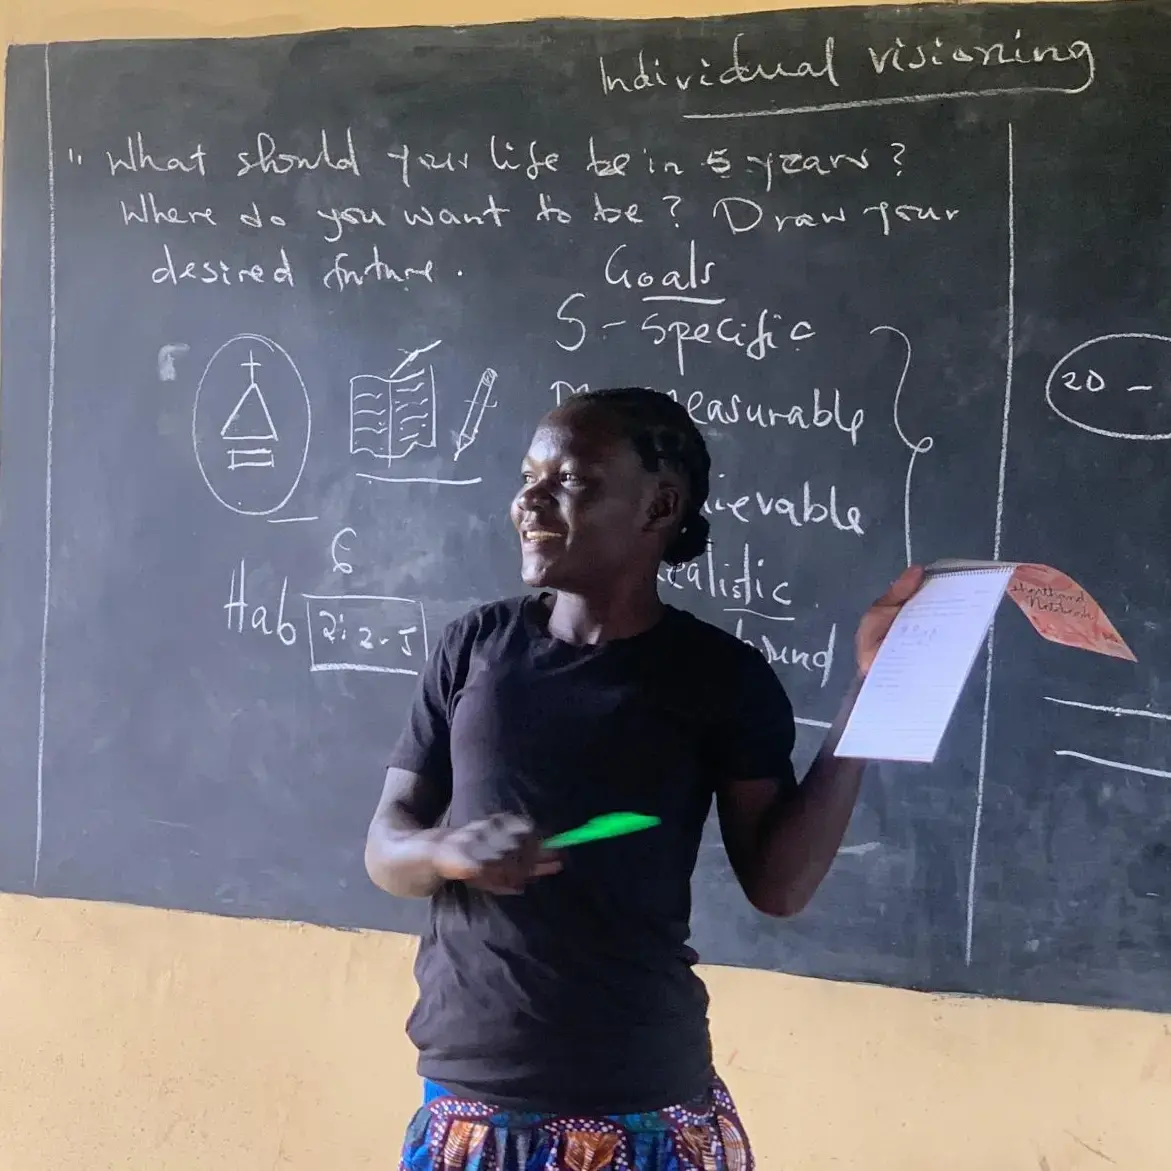 Individual visioning
" What should your life be in 5 years?
Where do you want to be? Draw your
desired future.
Goals
S - Specific
measurable
ievable
ealistic
ound
6
Hab 2:2-3
20 -
Shorthand
Notebook